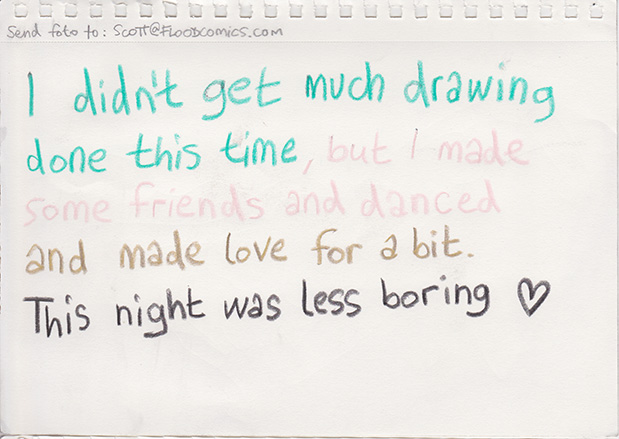 Send foto to: Scott@Floodcomics.com
I didn't get much drawing
done this time, but I made
some friends and danced
and made love for a bit.
This night was less boring ♡